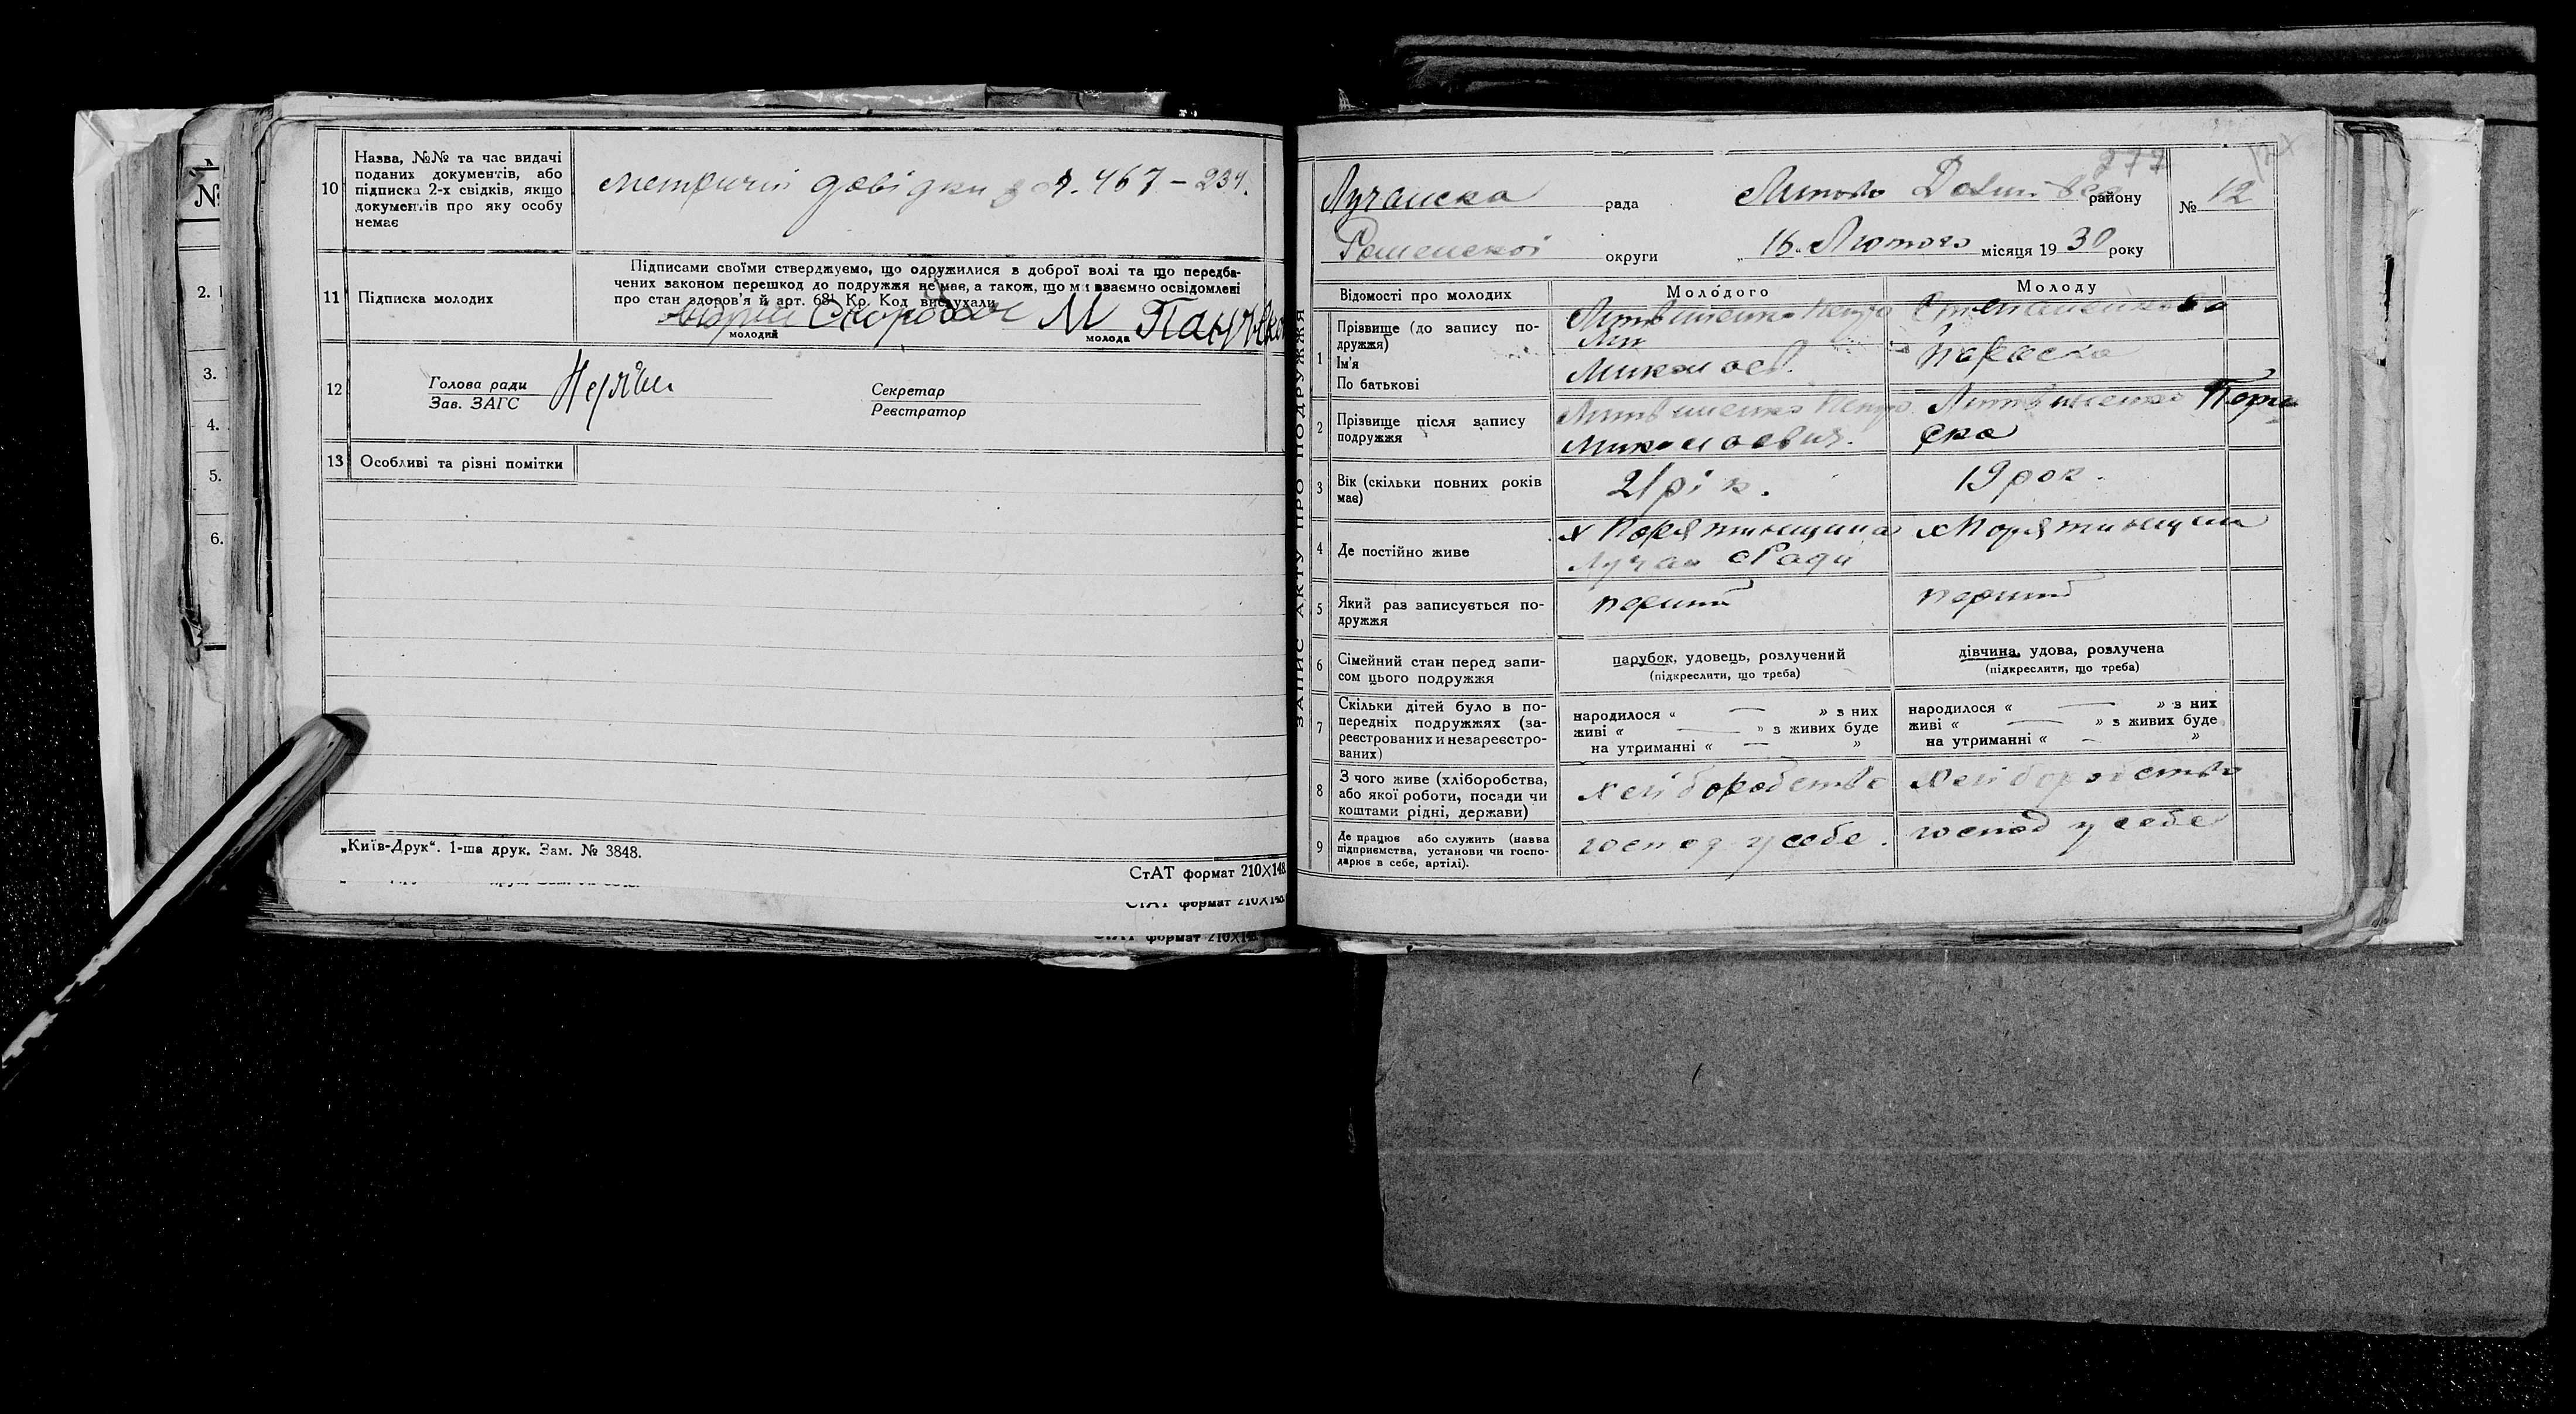 №
2.
3.
4.
5.
6.
10
Назва, №№ та час видачі
поданих документів, або
підписка 2-х свідків, якщо
документів про яку особу
немає
метричні довідки з 467 – 234.
11
Підписка молодих
Підписами своїми стверджуємо, що одружилися в доброї волі та що передба-
чених законом перешкод до подружжя немає, а також, що ми взаємно освідомлені
про стан здоров'я й арт. 68¹ Кр. Код вислухали
молодий
М
молода
12
Голова ради
Зав. ЗАГС
Секретар
Реєстратор
13
Особливі та різні помітки
„Київ-Друк“. 1-ша друк. Зам. № 3848.
СтАТ формат 210×148.
формат 210×148
формат 210×14
ЗАПИС АКТУ ПРО ПОДРУЖЖЯ
277
Лучанска рада
Липово Долин району
№ 12
Роменской округи
16 Лютого місяця 1930 року
Відомості про молодих
Молодого
Молоду
1
Прізвище (до запису по-
дружжя)
Ім'я
По батькові
Литвиненко Петро
Микола
Степаненкова
Параска
2
Прізвище після запису
подружжя
Литвиненко Петро
Миколаевич.
Литвиненко Пара
ска
3
Вік (скільки повних років
має)
21 рік.
19 рок.
4
Де постійно живе
х Порятинщина
Лучан с Ради
х Порятинщина
5
Який раз записується по-
дружжя
перший
перший
6
Сімейний стан перед запи-
сом цього подружжя
парубок, удовець, розлучений
(підкреслити, що треба)
дівчина, удова, розлучена
(підкреслити, що треба)
7
Скільки дітей було в по-
передніх подружжях (за-
реєстрованих и незареєстро-
ваних)
народилося « — » з них
живі « — » з живих буде
на утриманні « — »
народилося « — » з них
живі « — » з живих буде
на утриманні « — »
8
З чого живе (хліборобства,
або якої роботи, посади чи
коштами рідні, держави)
хліборобство
хліборобство
9
Де працює або служить (назва
підприємства, установи чи госпо-
дарює в себе, артілі).
господ у себе.
господ у себе